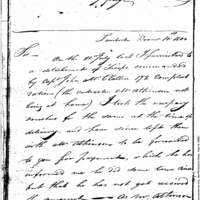 10th 1800
Sir
On the 31 July last I furnished to
a detachment of Troops commanded
by Capt. John McClellan 172 Compleat
rations (the contractor Mr Atkinson not
being at home) I took the necessary
voucher for the same at the time of
delivery, and have since left them
with Mr Atkinson to be forwarded
to you for payment, which he has
informed me he did some time since
but that he has not yet received
the amount — As Mr. Atkinson